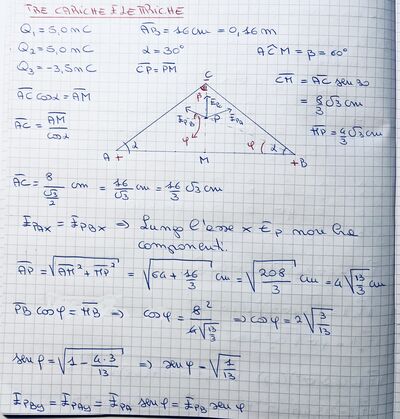 TRE CARICHE ELETTRICHE
Q₁ = 5,0 nC   A̅B̅ = 16 cm = 0,16 m
Q₂ = 5,0 nC   α = 30°   AĈM = β = 60°
Q₃ = -3,5 nC   C̅P̅ = P̅M̅
C̅M̅ = A̅C̅ sen 30
A̅C̅ cos α = A̅M̅
= 8/3 √3 cm
A̅C̅ = A̅M̅/cos α
M̅P̅ = 4/3 √3 cm
C
β
E_C
E_PB   P   E_PA
φ
A + α   M   φ α + B
A̅C̅ = 8/(√3/2) cm = 16/√3 cm = 16/3 √3 cm
E_PAx = E_PBx ⇒ Lungo l'asse x E_P non ha
componenti.
A̅P̅ = √(A̅M̅² + M̅P̅²) = √(64 + 16/3) cm = √(208/3) cm = 4√(13/3) cm
P̅B̅ cos φ = M̅B̅ ⇒ cos φ = 8²/(4√(13/3)) ⇒ cos φ = 2√(3/13)
sen φ = √(1 - 4·3/13) ⇒ sen φ = √(1/13)
E_PBy = E_PAy = E_PA sen φ = E_PB sen φ